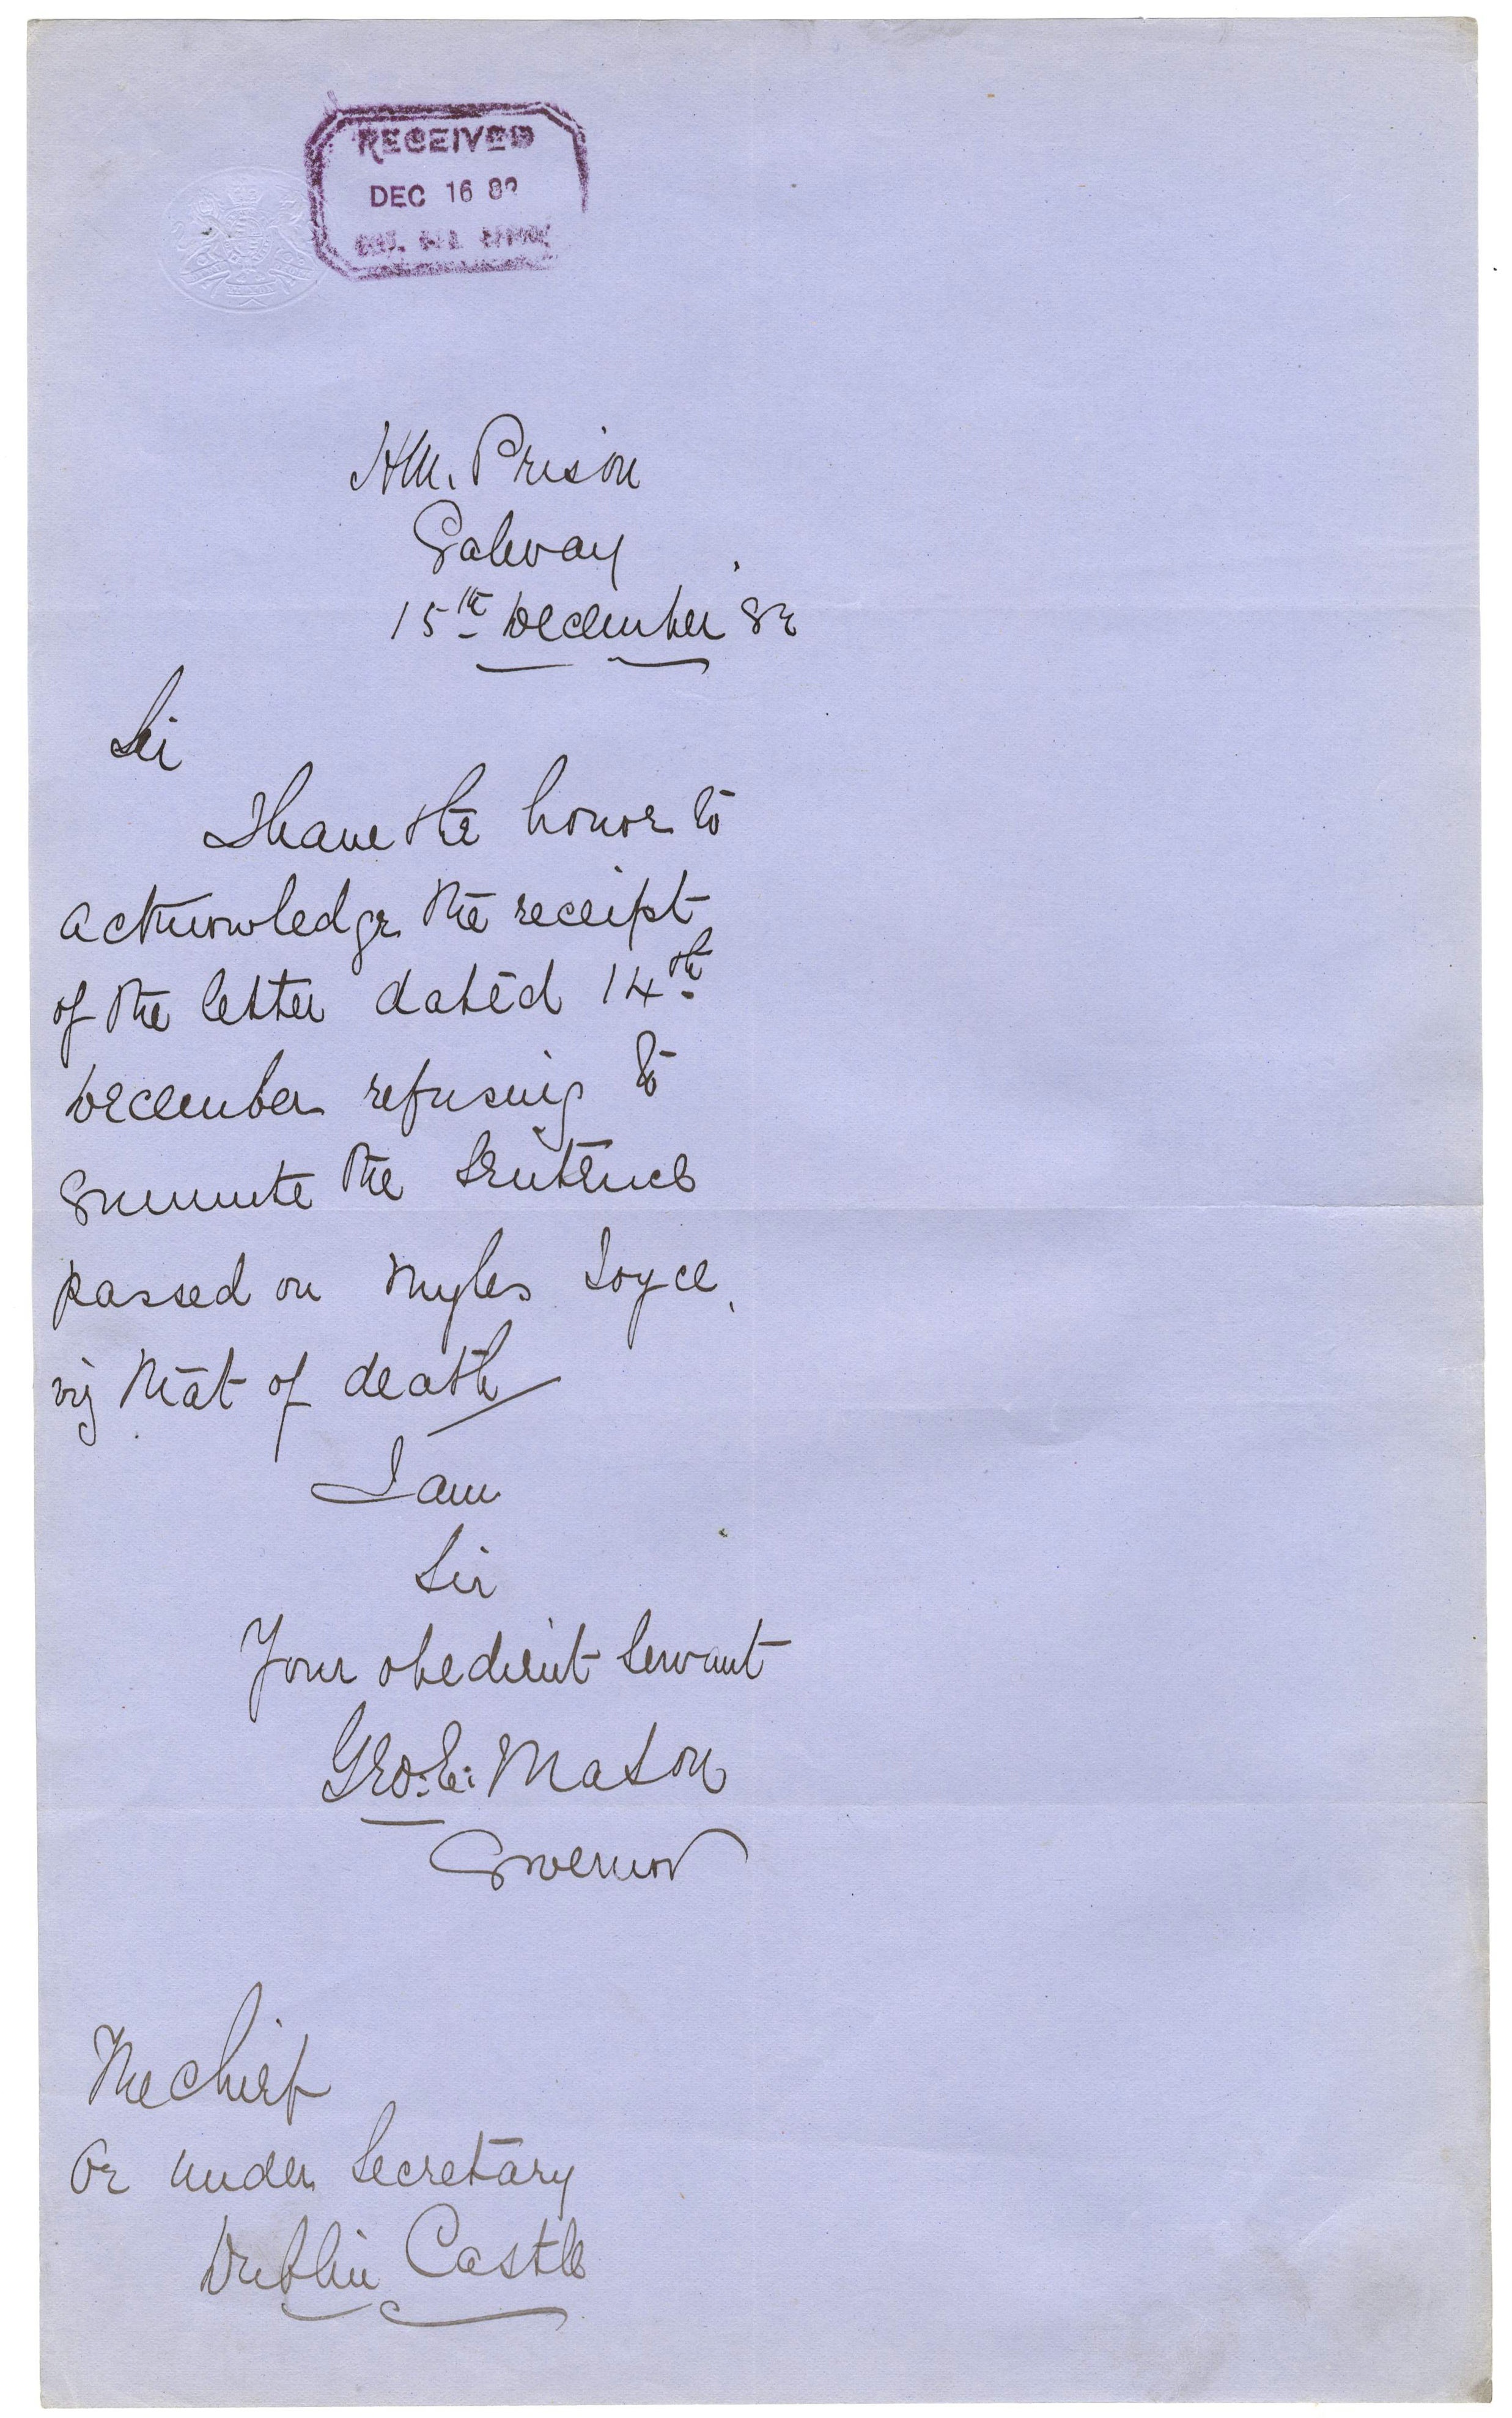 RECEIVED
DEC 16 82
H.M. Prison
Galway
15th December '82
Sir
I have the honor to
acknowledge the receipt
of the letter dated 14th
December refusing to
Commute the Sentence
passed on Myles Joyce,
viz that of death
I am
Sir
Your obedient Servant
Geo: E: Mason
Governor
The Chief
or under Secretary
Dublin Castle